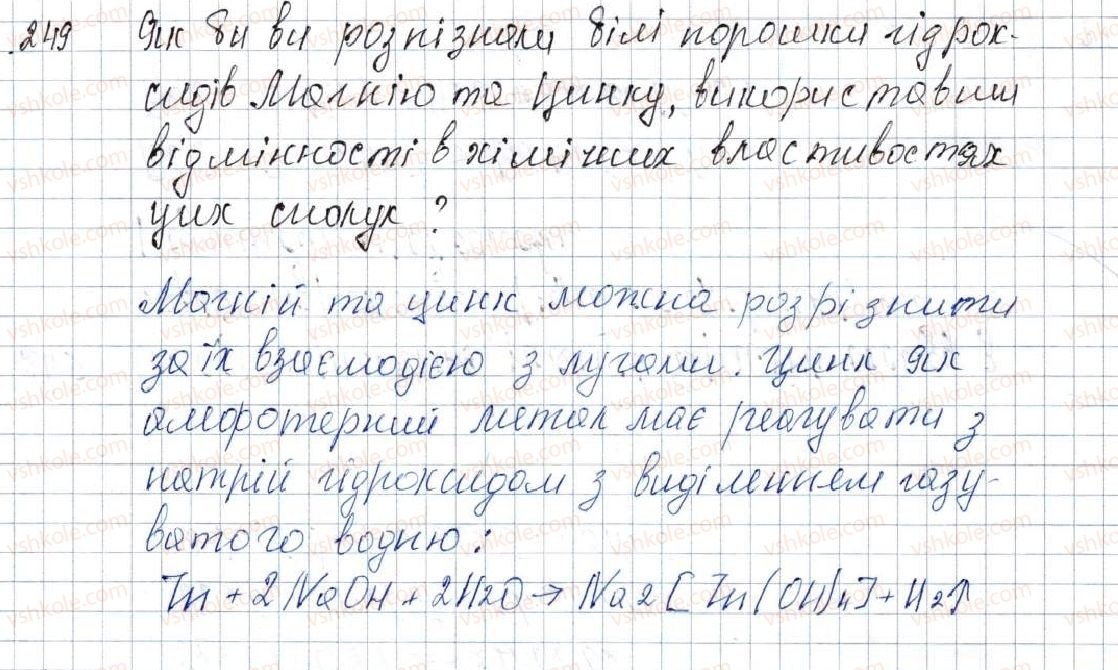 249 Як би ви розпізнали білі порошки гідрок-
сидів Магнію та Цинку, використавши
відмінності в хімічних властивостях
цих сполук ?
Магній та цинк можна розрізнити
за їх взаємодією з лугами. Цинк як
амфотерний метал має реагувати з
натрій гідроксидом з виділенням газу-
ватого водню:
Zn + 2NaOH + 2H2O → Na2[Zn(OH)4] + H2↑